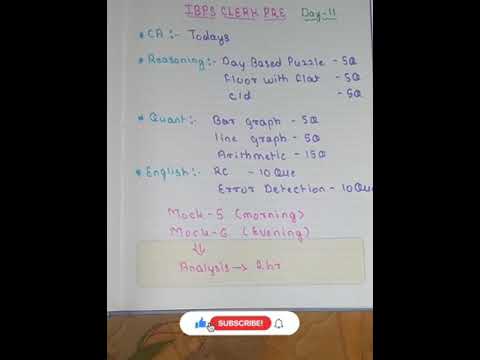 IBPS CLERK PRE Day-11
* CA :- Todays
* Reasoning:- Day Based Puzzle - 5Q
Floor with flat - 5Q
c/d - 5Q
* Quant:- Bar graph - 5Q
line graph - 5Q
Arithmetic - 15Q
* English:- RC - 10 Que
Error Detection - 10 Que
Mock-5 (morning)
Mock-6 (Evening)
⇓
Analysis → 2 hr
SUBSCRIBE!